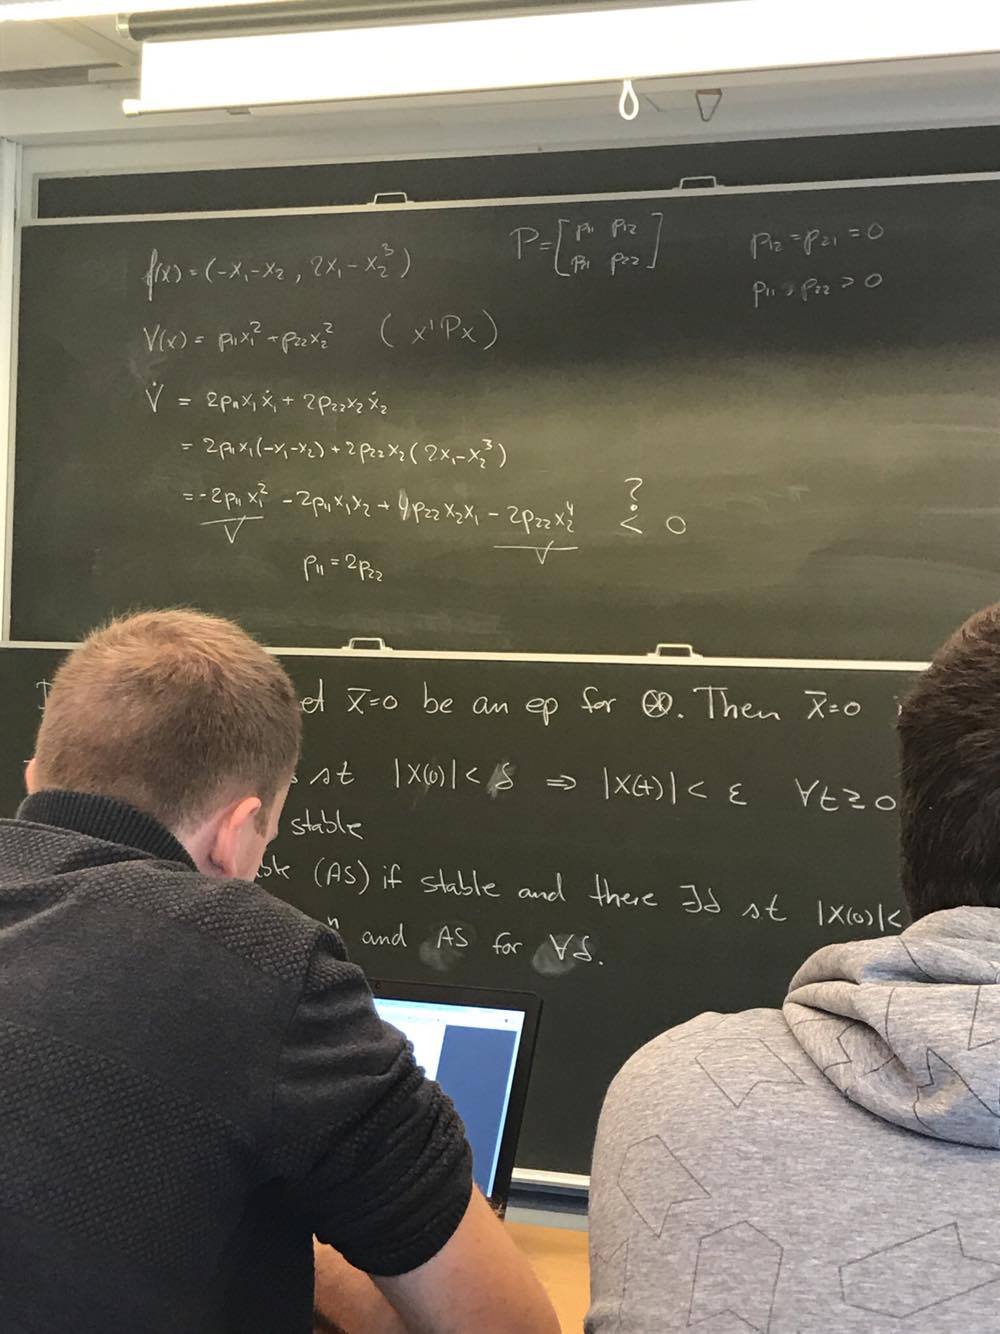 f(x) = (-x₁-x₂, 2x₁-x₂³)
P = [p₁₁ p₁₂
p₂₁ p₂₂]
p₁₂ = p₂₁ = 0
p₁₁, p₂₂ > 0
V(x) = p₁₁x₁² + p₂₂x₂² (x'Px)
V̇ = 2p₁₁x₁ẋ₁ + 2p₂₂x₂ẋ₂
= 2p₁₁x₁(-x₁-x₂) + 2p₂₂x₂(2x₁-x₂³)
= -2p₁₁x₁² - 2p₁₁x₁x₂ + 4p₂₂x₂x₁ - 2p₂₂x₂⁴ ? < 0
√ √
p₁₁ = 2p₂₂
et x̄=0 be an ep for ⊛. Then x̄=0
st |x(0)| < δ ⇒ |x(t)| < ε ∀t≥0
stable
(AS) if stable and there ∃δ st |x(0)|<
n and AS for ∀δ.